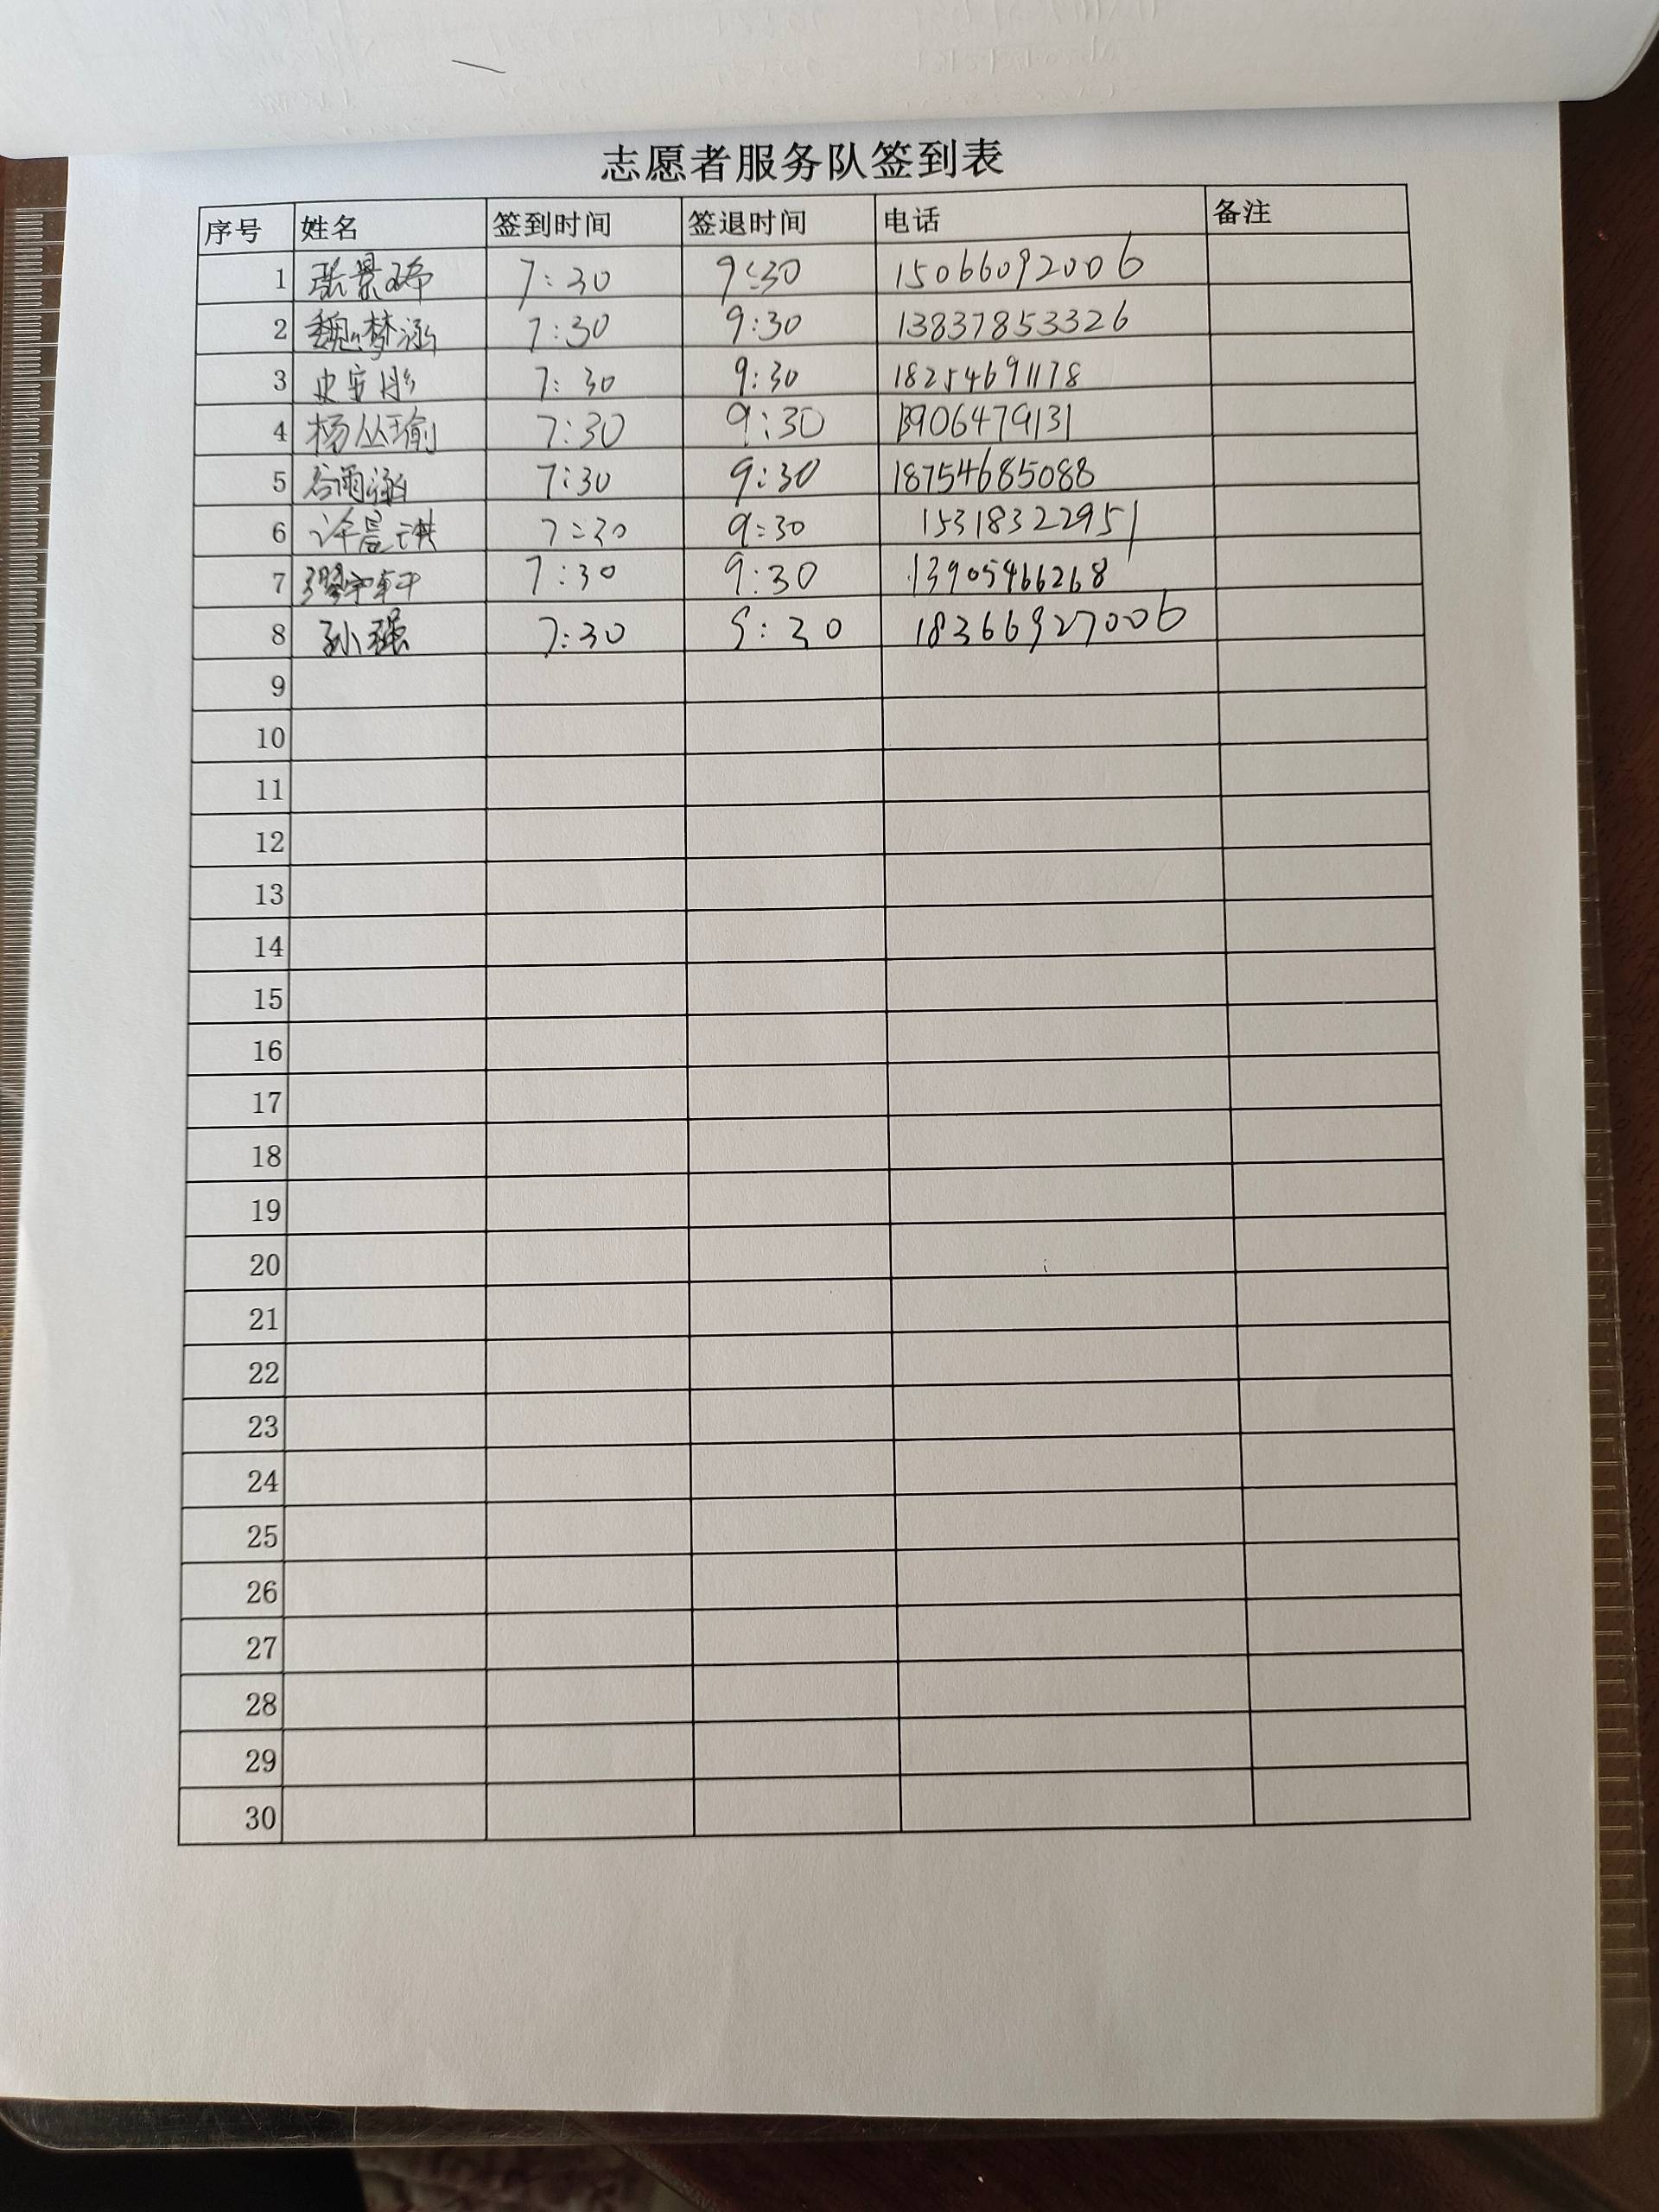 志愿者服务队签到表
序号 姓名 签到时间 签退时间 电话 备注
1 张景 7:30 9:30 15066092006
2 魏梦涵 7:30 9:30 13837853326
3 史安彤 7:30 9:30 18254691178
4 杨丛瑜 7:30 9:30 13906479131
5 谷雨涵 7:30 9:30 18754685088
6 许晨琪 7:30 9:30 15318322951
7 7:30 9:30 13905466268
8 孙强 7:30 9:30 18366927006
9
10
11
12
13
14
15
16
17
18
19
20
21
22
23
24
25
26
27
28
29
30